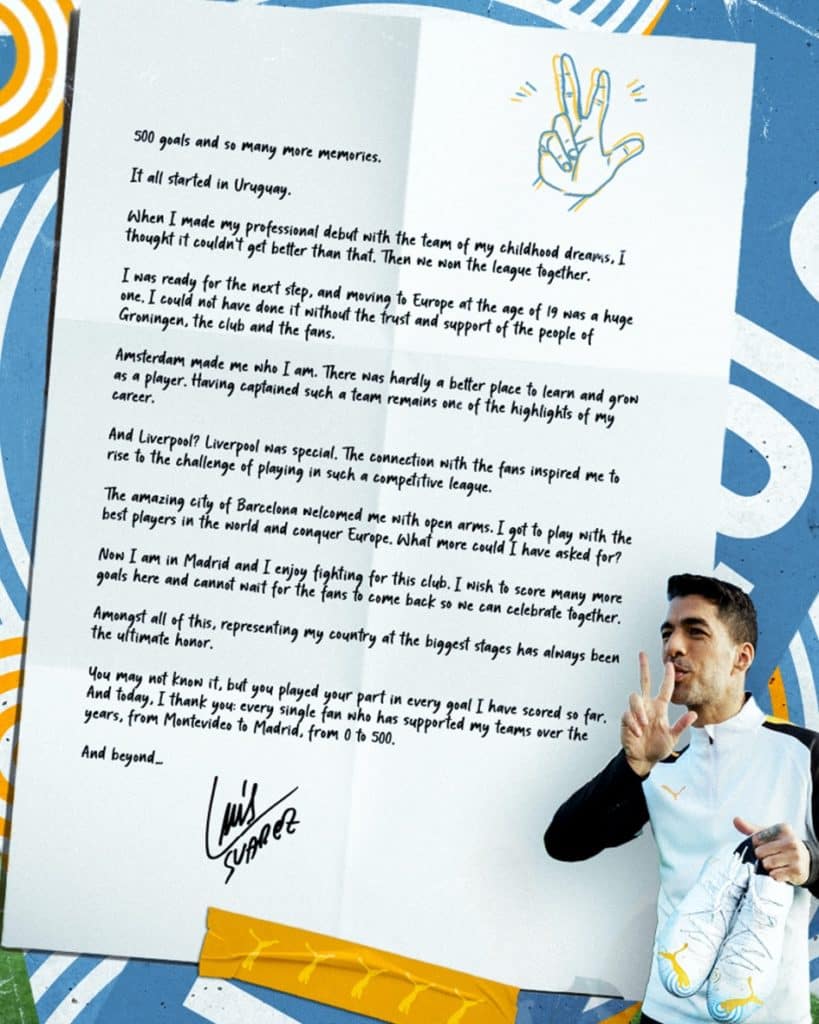 500 goals and so many more memories.
It all started in Uruguay.
When I made my professional debut with the team of my childhood dreams, I
thought it couldn't get better than that. Then we won the league together.
I was ready for the next step, and moving to Europe at the age of 19 was a huge
one. I could not have done it without the trust and support of the people of
Groningen, the club and the fans.
Amsterdam made me who I am. There was hardly a better place to learn and grow
as a player. Having captained such a team remains one of the highlights of my
career.
And Liverpool? Liverpool was special. The connection with the fans inspired me to
rise to the challenge of playing in such a competitive league.
The amazing city of Barcelona welcomed me with open arms. I got to play with the
best players in the world and conquer Europe. What more could I have asked for?
Now I am in Madrid and I enjoy fighting for this club. I wish to score many more
goals here and cannot wait for the fans to come back so we can celebrate together.
Amongst all of this, representing my country at the biggest stages has always been
the ultimate honor.
You may not know it, but you played your part in every goal I have scored so far.
And today, I thank you: every single fan who has supported my teams over the
years, from Montevideo to Madrid, from 0 to 500.
And beyond...
Luis
SUAREZ